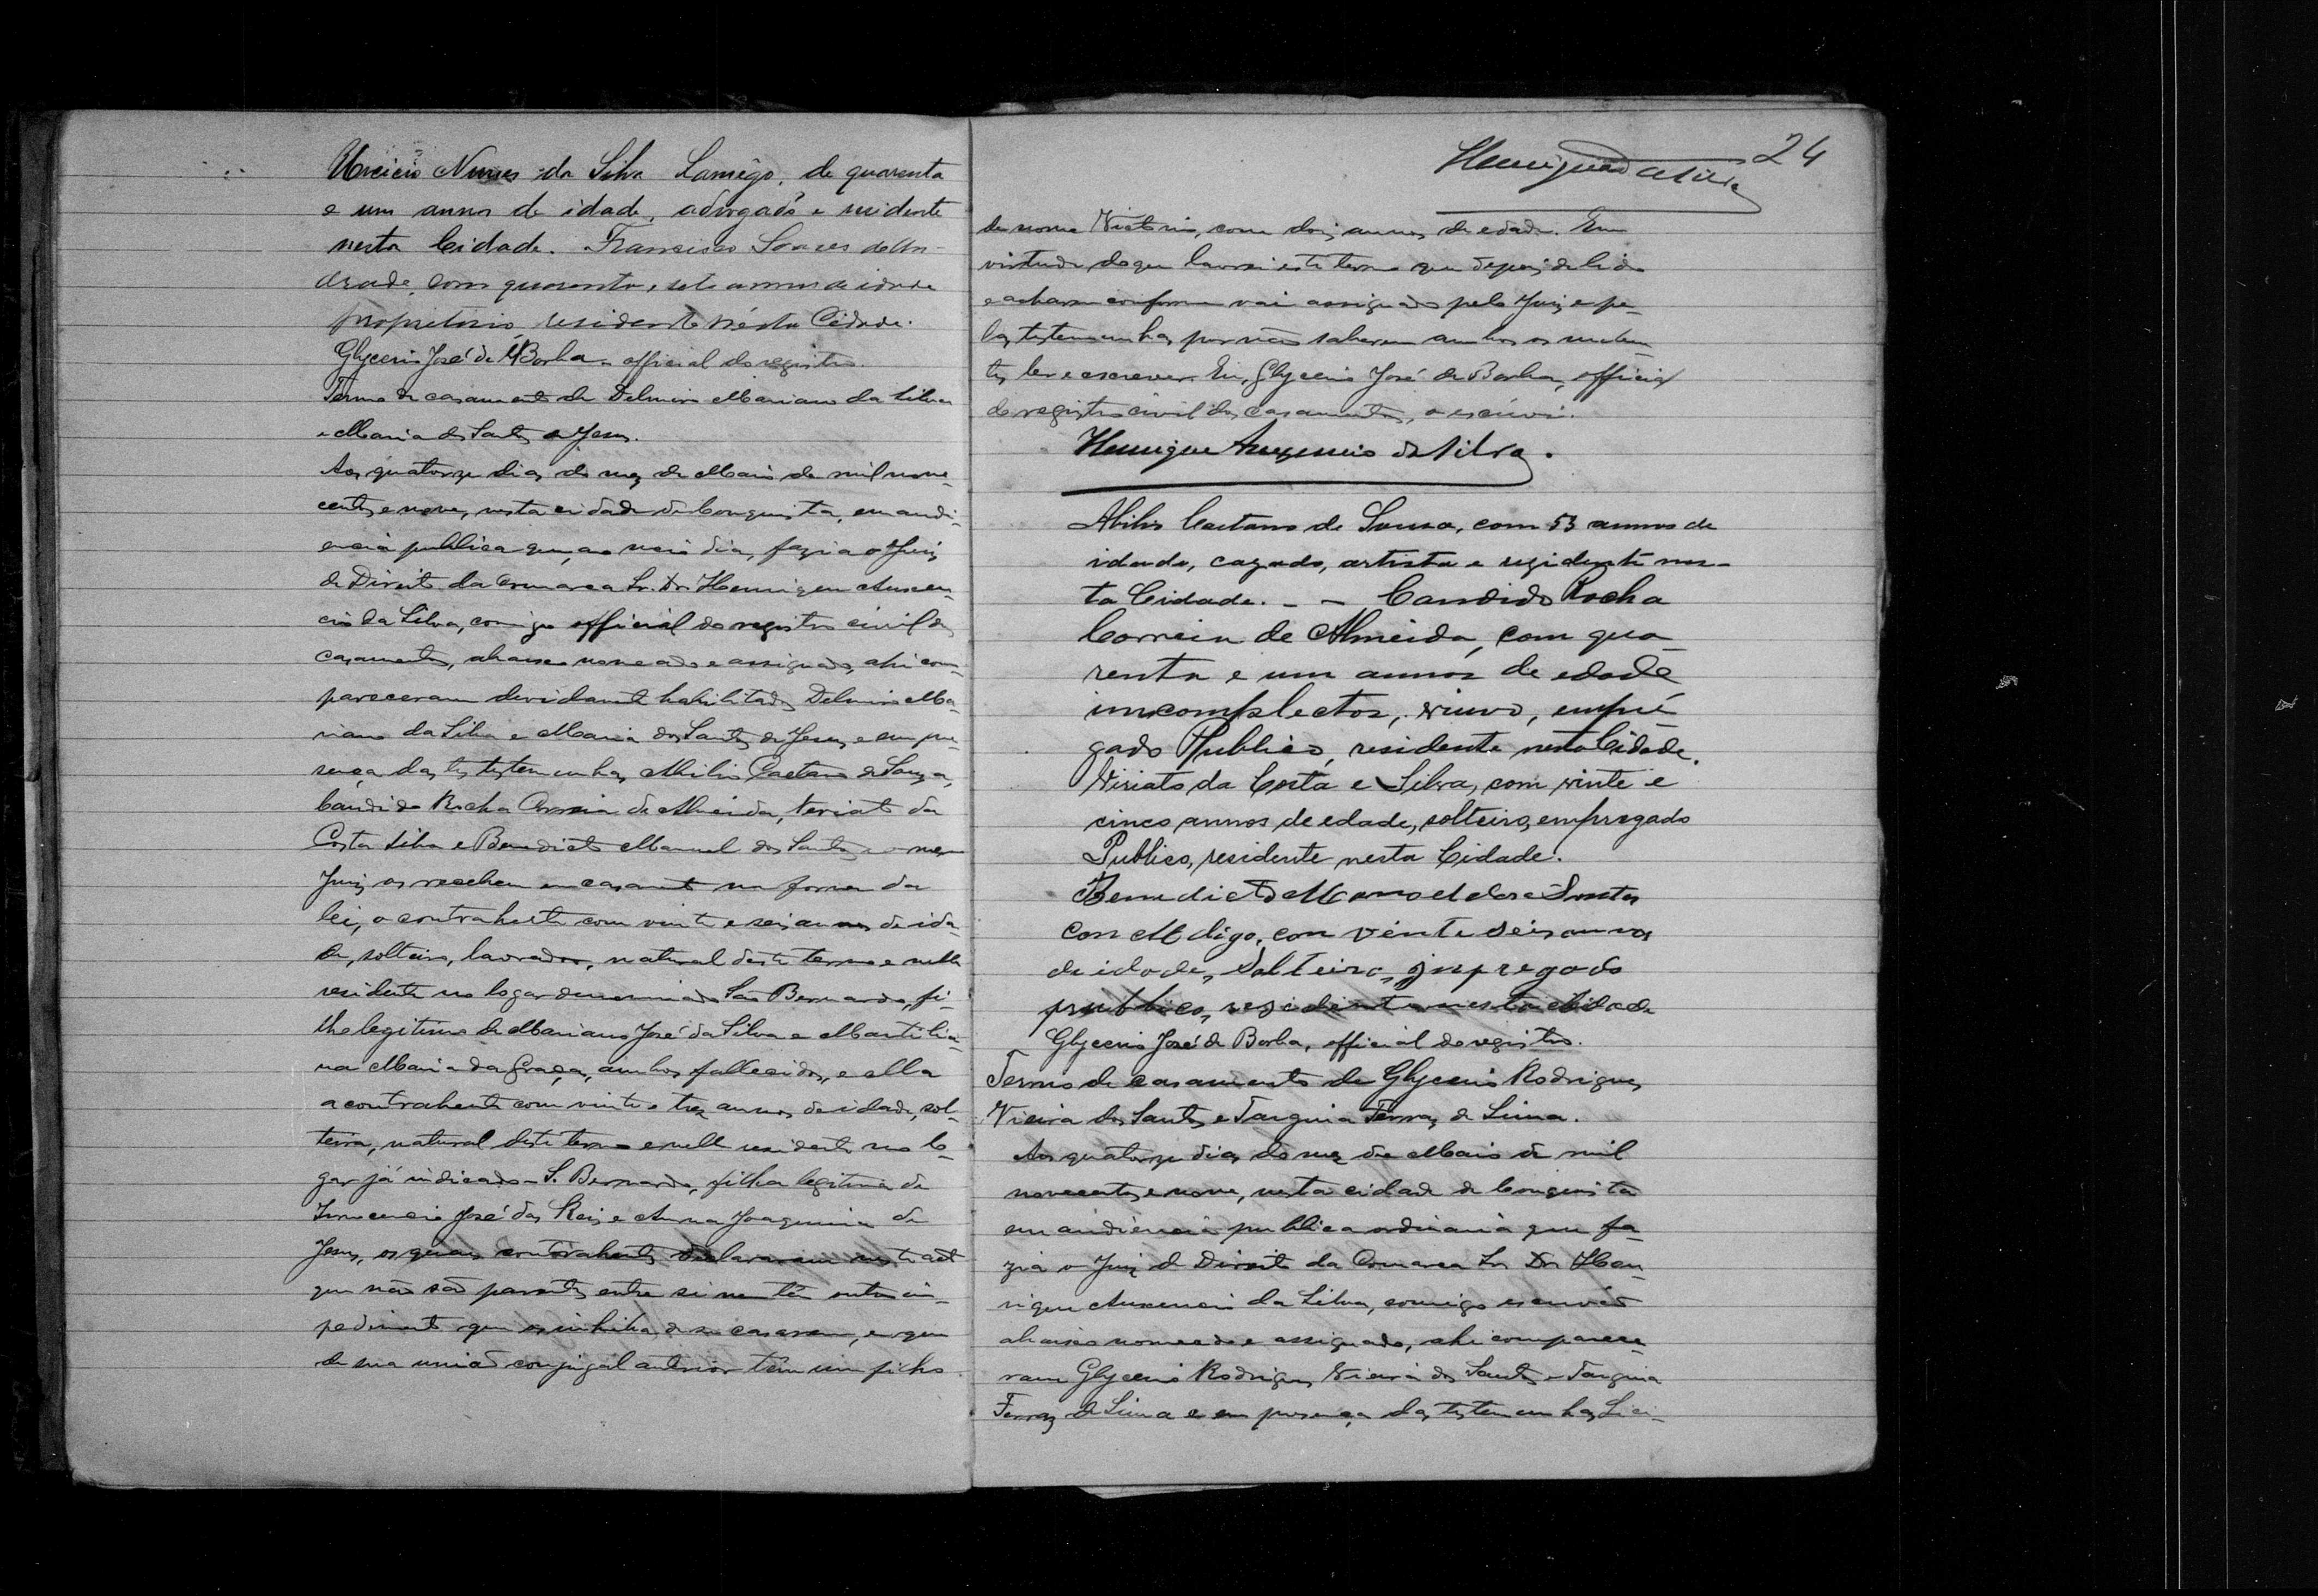 Nunes da Silva Lamêgo, de quarenta
e um annos de idade, advogado e residente
nesta Cidade. Francisco Soares de An-
drade, com quarenta, sete annos de idade
propretario, residente nésta Cidade.
Glycerio José de Borba - official do registro.
Termo de casamento de Delmiro Mariano da Silva
e Maria dos Santos de Jesus.
Aos quatorze dias do mez de Maio de mil nove-
centos e nove, nesta cidade de Conquista, em audi-
encia publica que, ao meio dia, fazia o Juiz
de Direito da Comarca Sr. Dr. Henrique Auxen-
cio da Silva, comigo official do registro civil dos
casamentos, abaixo nomeado e assignado, ahi com-
pareceram devidamente habilitados Delmiro Ma-
riano da Silva e Maria dos Santos de Jesus, e em pre-
sença das testemunhas Abilio Caetano de Souza,
Candido Rocha Correia de Almeida, Viriato da
Costa Silva e Benedicto Manuel dos Santos o mesmo
Juiz os recebeu em casamento na forma da
lei, o contrahente com vinte e seis annos de ida-
de, solteiro, lavrador, natural deste termo e nelle
residente no logar denominado São Bernardo, fi-
lho legitimo de Mariano José da Silva e Martilia-
na Maria da Graça, ambos fallecidos, e ella
a contrahente com vinte e trez annos de idade, sol-
teira, natural deste termo e nelle residente no lo-
gar já indicado - S. Bernardo, filha legitima de
Innocencio José dos Reis e Anna Joaquina de
Jesus, os quaes contrahentes declararam neste acto
que não são parentes entre si nem têm outro im-
pedimento que os inhiba de se casarem, e que
de sua união conjugal anterior têm um filho
24
Henrique da Silva
de nome Victorio, com dois annos de edade. Em
virtude do que lavrei este termo que depois de lido
e acharem conforme vai assignado pelo Juiz e pe-
las testemunhas por não saberem ambos os nuben-
tes ler e escrever. Eu, Glycerio José de Borba, official
do registro civil dos casamentos, o escrevi.
Henrique Auxencio da Silva.
Abilio Caetano de Souza, com 53 annos de
idade, cazado, artista e rezidente nes-
ta Cidade. - - Candido Rocha
Correia de Almeida, com qua-
renta e um annos de edade
imcomplectos, viuvo, empré-
gado Publico, residente nesta Cidade.
Viriato da Costa e Silva, com vinte e
cinco annos de edade, solteiro, empregado
Publico, residente nesta Cidade.
Benedicto Manoel dos Santos
con Md digo, con vente seis annos
de idade, Solteiro, impregado
publico, rezidente nesta Cidade
Glycerio José de Borba, official do registro.
Termo de casamento de Glycerio Rodrigues
Vieira dos Santos e Targina Ferraz de Lima.
Aos quatorze dias do mez de Maio de mil
novecentos e nove, nesta cidade de Conquista
em audiencia publica ordinaria que fa-
zia o Juiz de Direito da Comarca Sr. Dr. Hen-
rique Auxencio da Silva, comigo escrivão
abaixo nomeado e assignado, ahi comparece-
ram Glycerio Rodrigues Vieira dos Santos e Targina
Ferraz de Lima e em presença das testemunhas Lici-